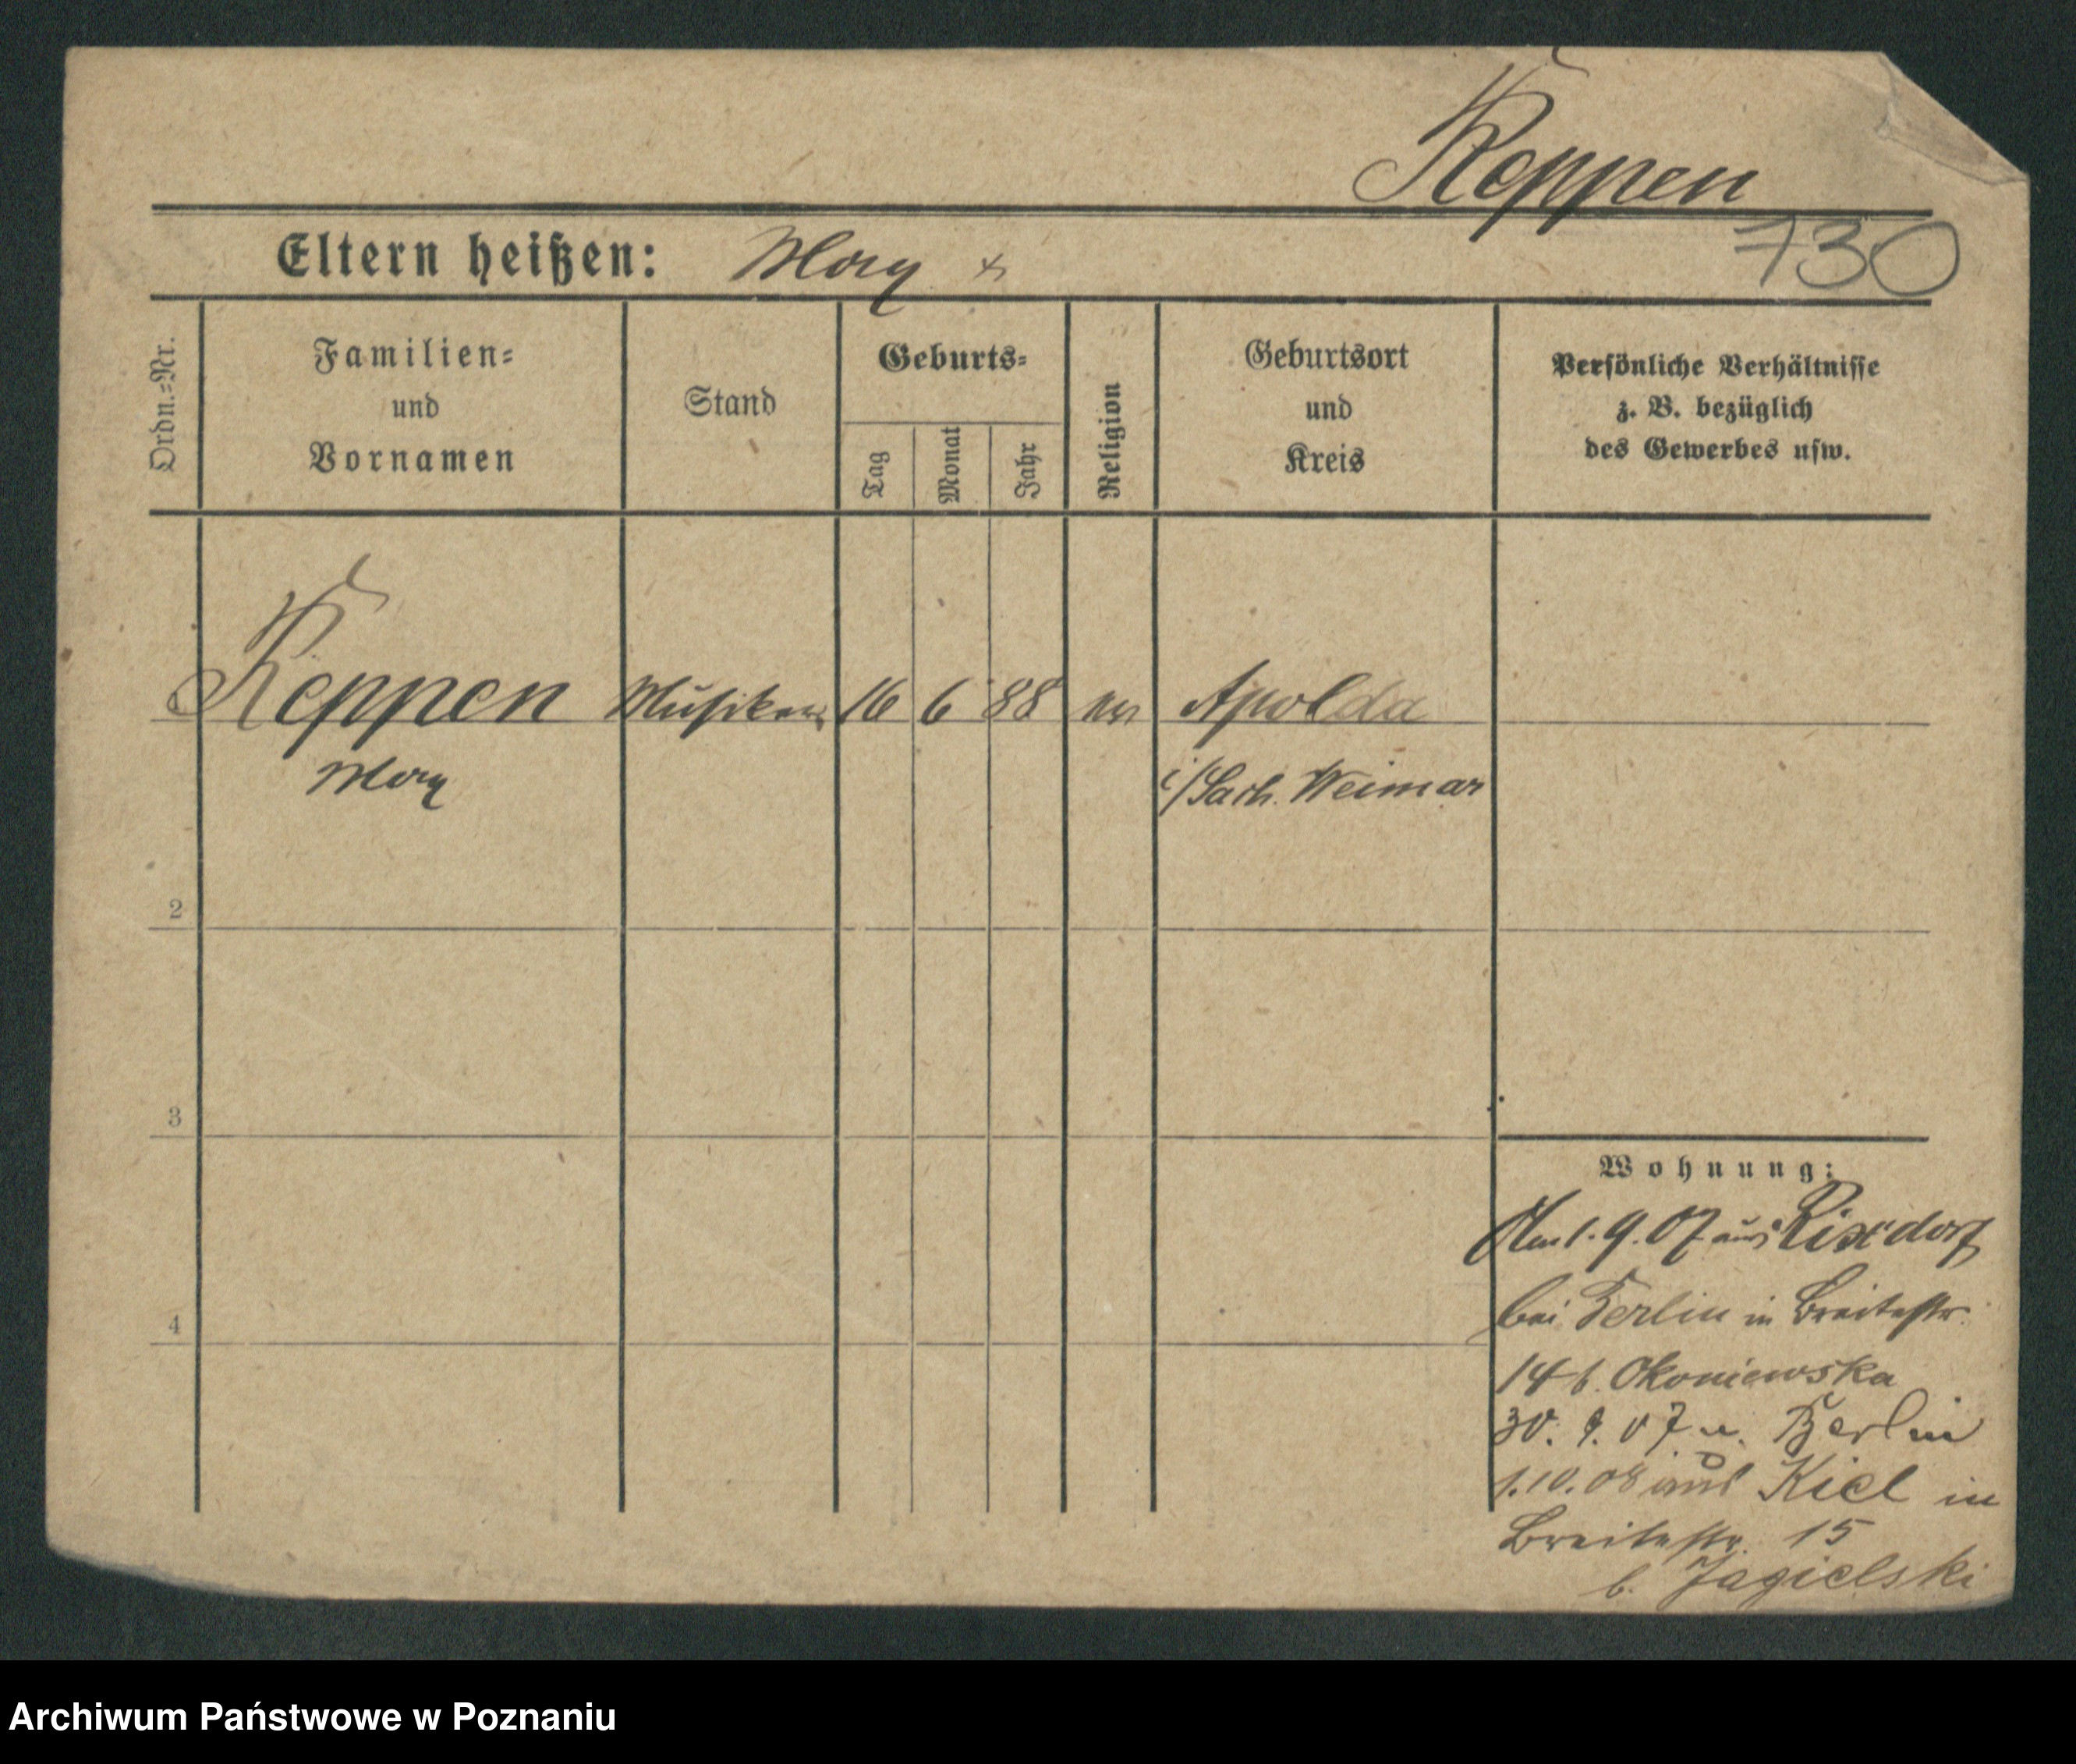 Keppen
730
Eltern heißen: Max
Ordn.=Nr.
Familien=
und
Vornamen
Stand
Geburts=
Tag
Monat
Jahr
Religion
Geburtsort
und
Kreis
Persönliche Verhältnisse
z. B. bezüglich
des Gewerbes usw.
Keppen Musiker 16 6 88 Apolda
Max i/Sach. Weimar
2
3
4
Wohnung:
Am 1. 9. 07 aus Rixdorf
bei Berlin in Breitestr.
14 b. Okoniewska
30. 9. 07 n. Berlin
1. 10. 08 aus Kiel in
Breitestr. 15
b. Jagielski
Archiwum Państwowe w Poznaniu